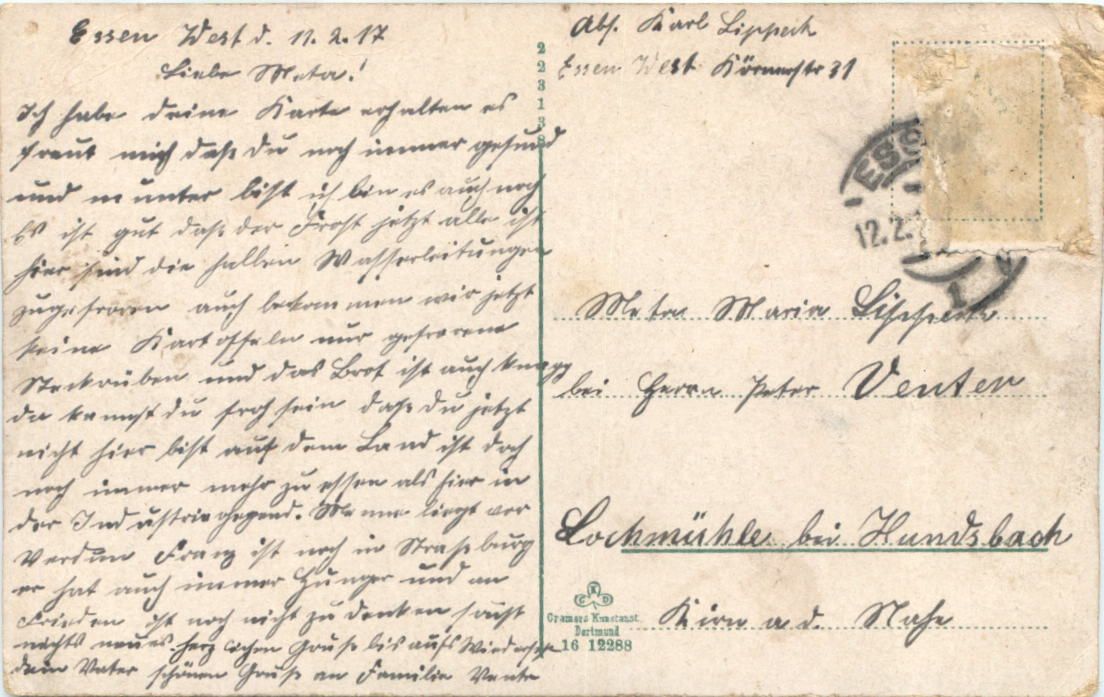 Essen West d. 11.2.17
Liebe Meta!
Ich habe deine Karte erhalten es
freut mich daß du noch immer gesund
und munter bist ich bin es auch noch
Es ist gut daß der Frost jetzt alle ist
hier sind die halben Wasserleitungen
zugefroren auch bekommen wir jetzt
keine Kartoffeln nur gefrorene
Steckrüben und das Brot ist auch knapp
da kannst du froh sein daß du jetzt
nicht hier bist auf dem Land ist doch
noch immer mehr zu essen als hier in
der Industriegegend. liegt vor
Verdun Franz ist noch in Straßburg
er hat auch immer Hunger und an
Frieden ist noch nicht zu denken sonst
nichts neues herzlichen Gruß bis aufs Wiedersehn
dein Vater schönen Gruß an Familie Vente
223138
Abs. Karl Lippeck
Essen West Körnerstr 31
ESS
12.2.
1
Meta Maria Lippeck
bei Herrn Peter Venter
Lochmühle bei Hundsbach
Kirn a d. Nahe
CKD
Cramers Kunstanst.
Dortmund
16 12288